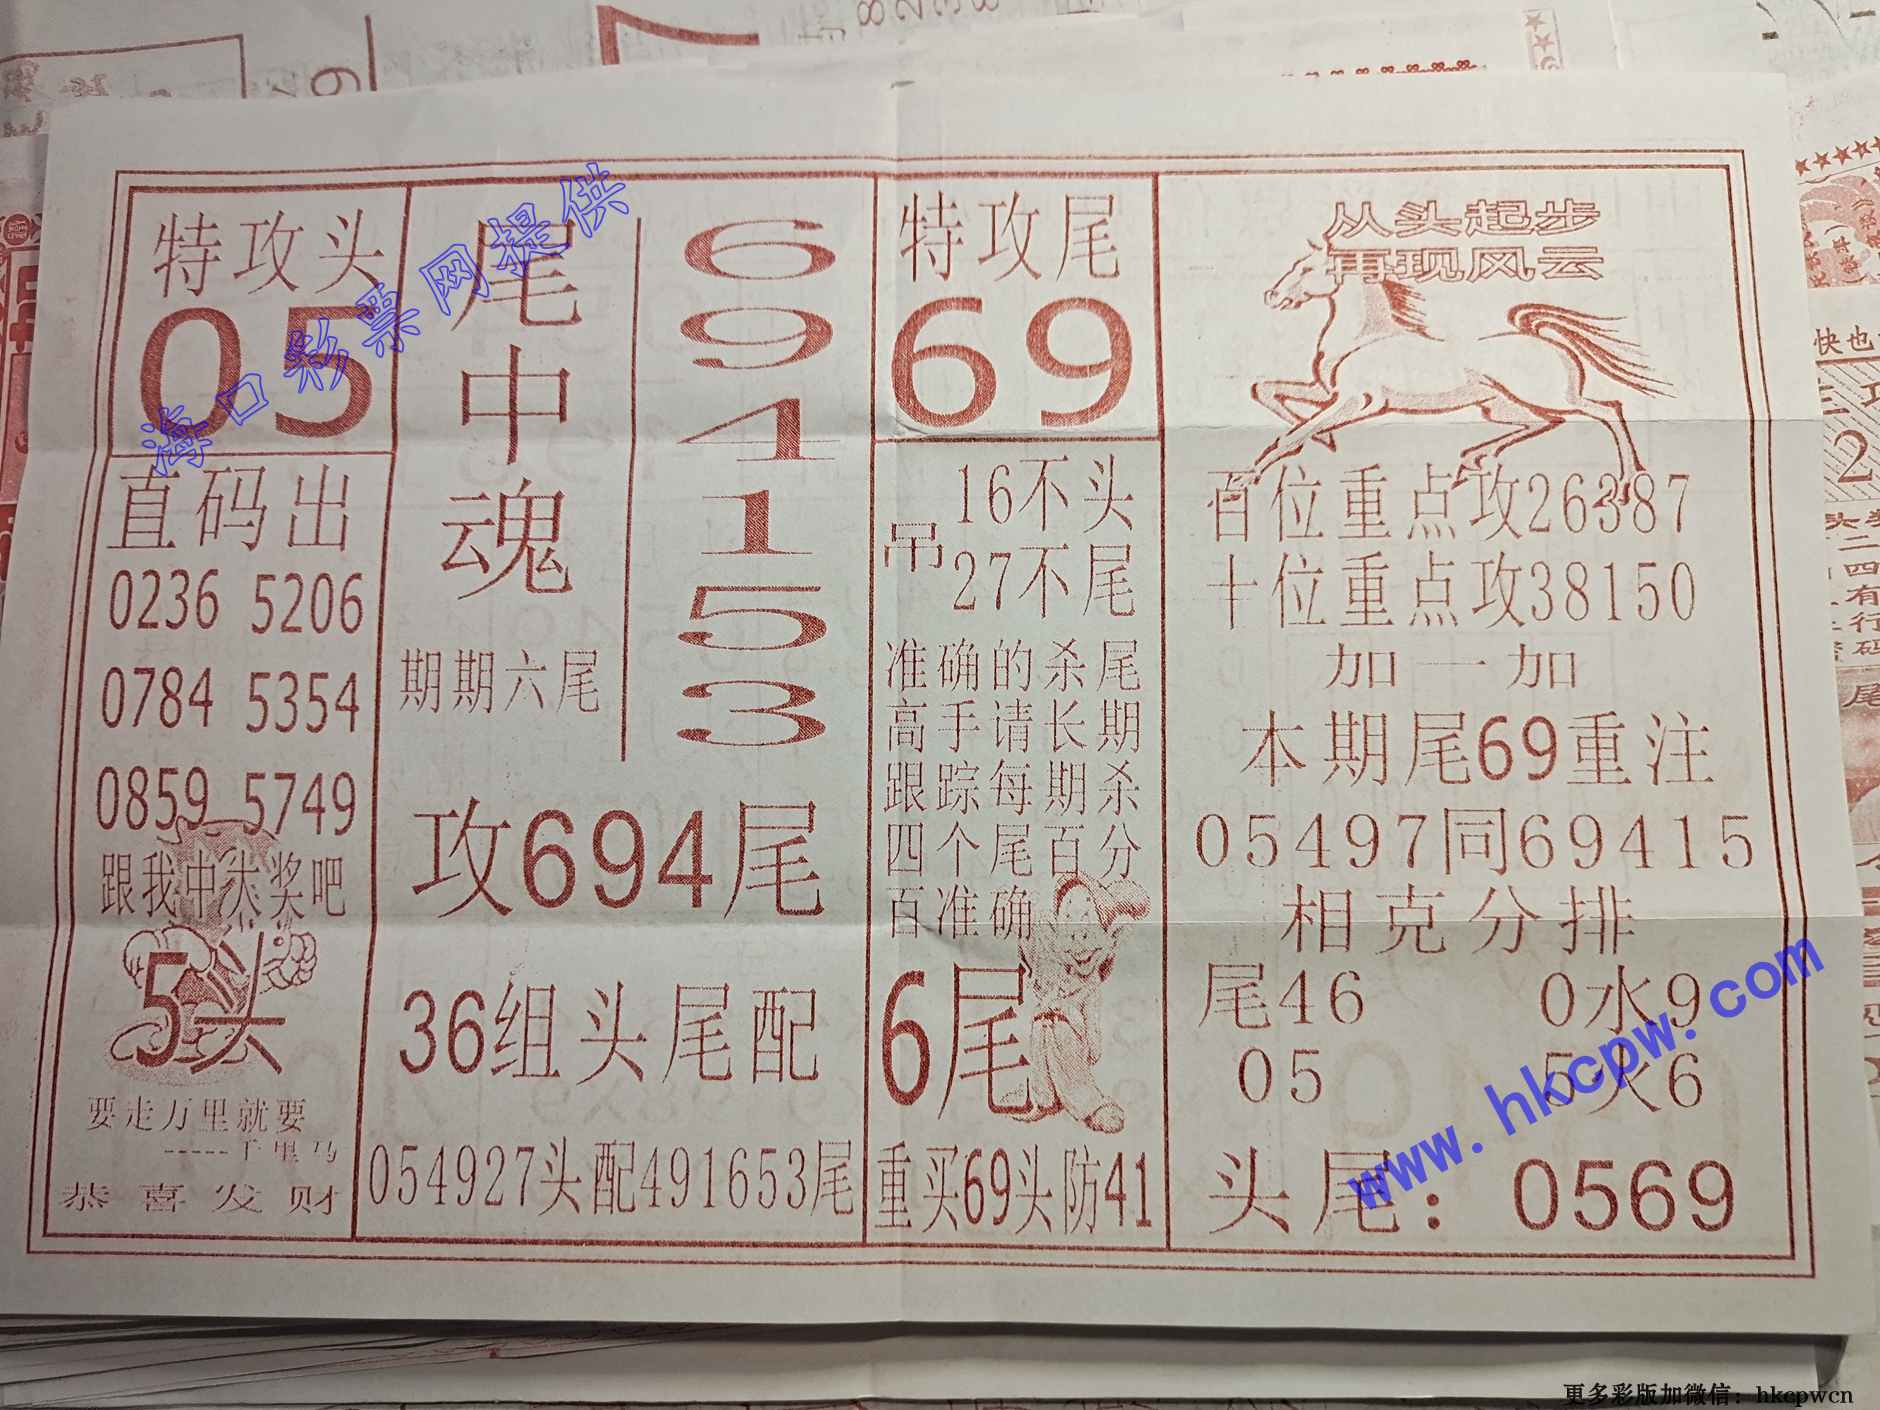 特攻头
05
直码出
0236 5206
0784 5354
0859 5749
跟我中大奖吧
5头
要走万里就要
-----千里马
恭喜发财
尾中魂
期期六尾
6
9
4
1
5
3
攻694尾
36组头尾配
054927头配491653尾
特攻尾
69
吊
16不头
27不尾
准确的杀尾
高手请长期
跟踪每期杀
四个尾百分
百准确
6尾
重买69头防41
从头起步
再现风云
百位重点攻26387
十位重点攻38150
加一加
本期尾69重注
05497同69415
相克分排
尾46 0水9
05 5火6
头尾：0569
海口彩票网提供
www.hkcpw.com
更多彩版加微信：hkcpwcn
快也
2
尾